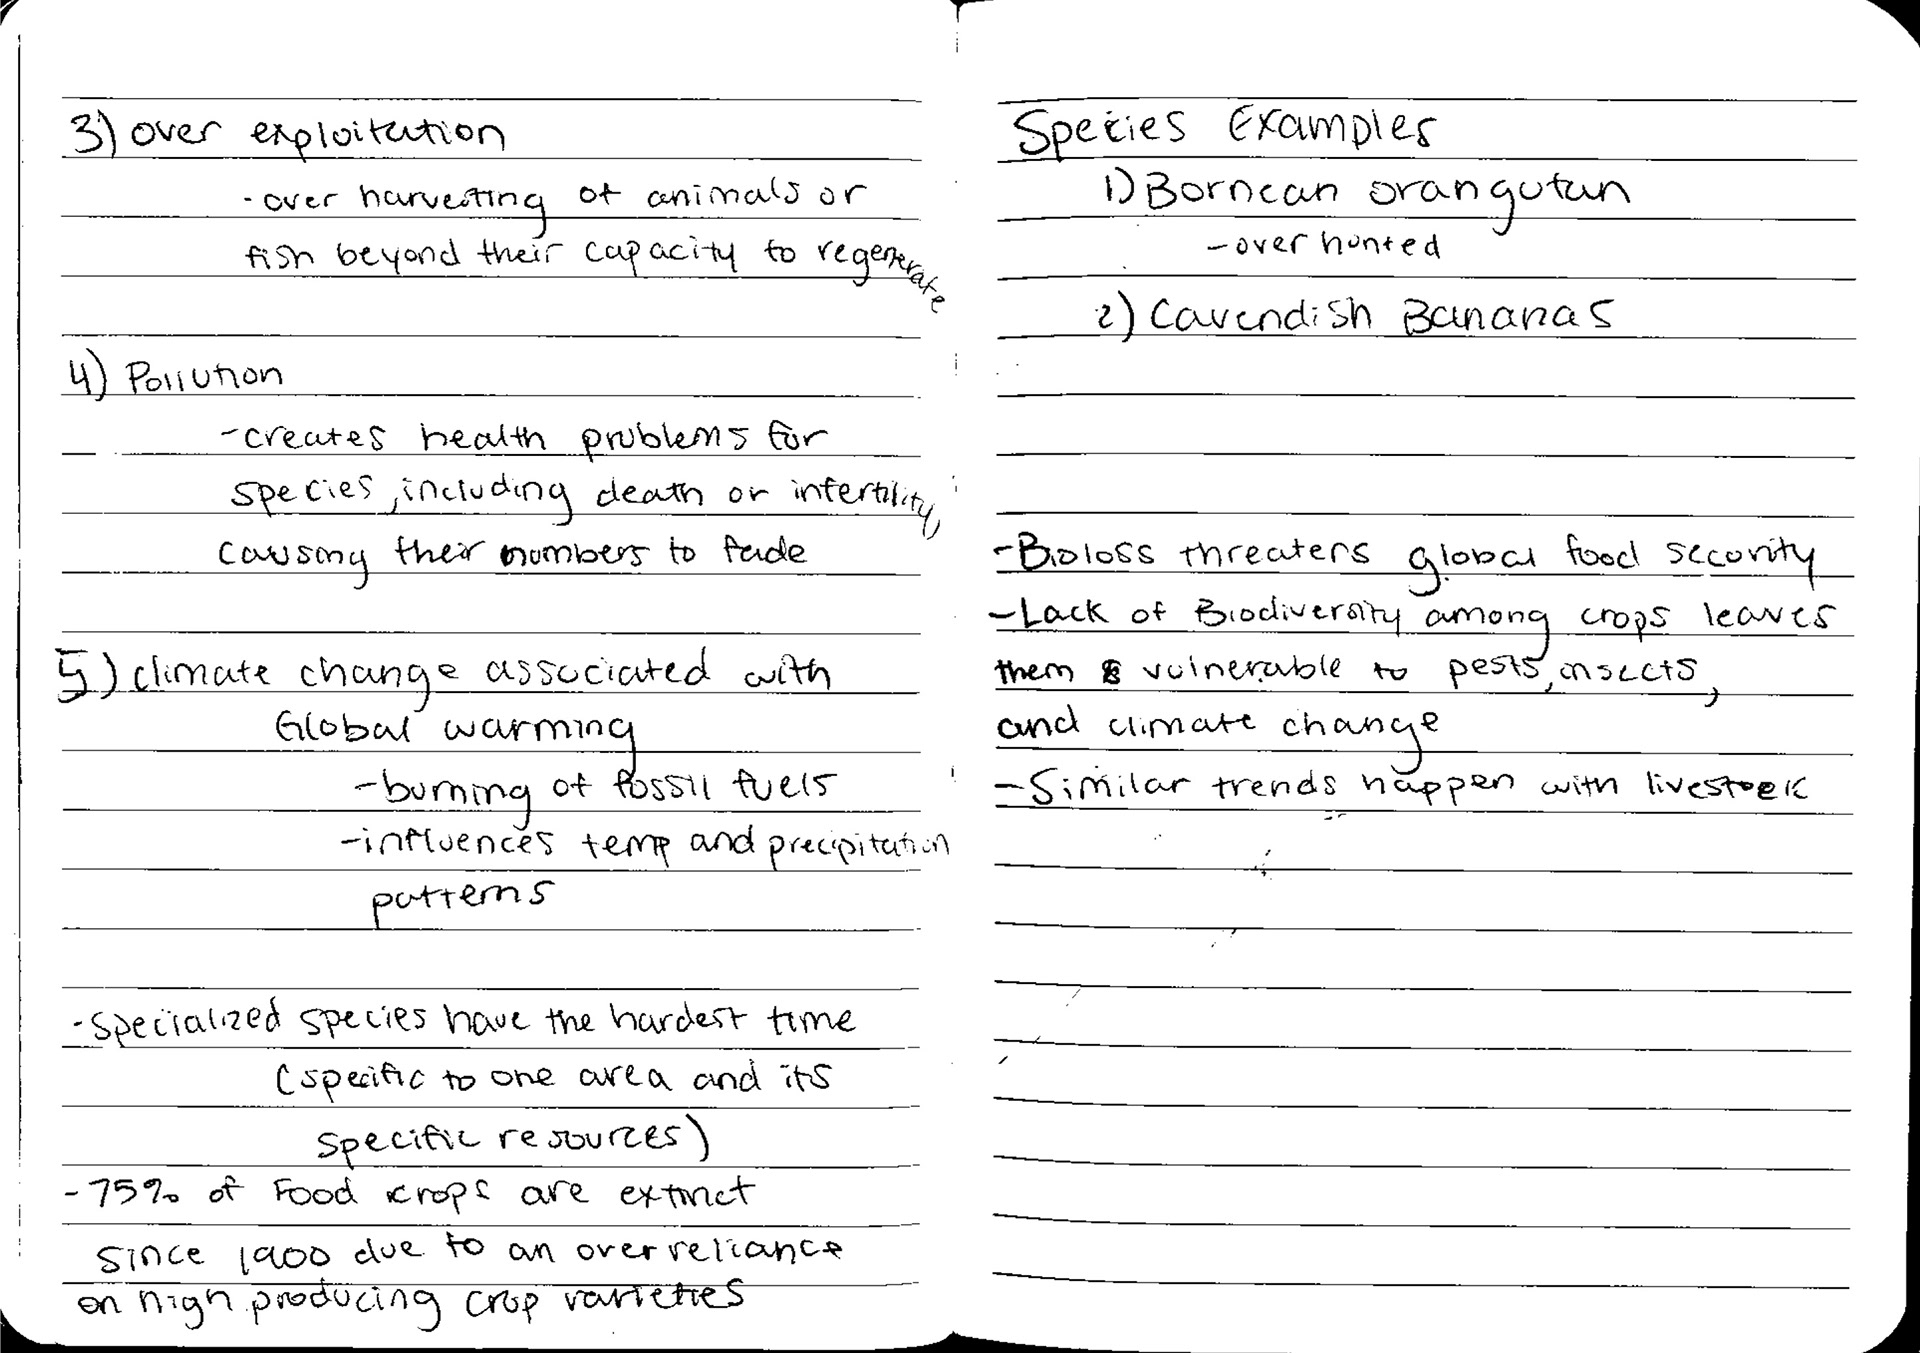 3) over exploitation
- over harvesting of animals or
fish beyond their capacity to regenerate
4) Pollution
- creates health problems for
species, including death or infertility,
causing their numbers to fade
5) climate change associated with
Global warming
- burning of fossil fuels
- influences temp and precipitation
patterns
- specialized species have the hardest time
(specific to one area and its
specific resources)
- 75% of Food crops are extinct
since 1900 due to an over reliance
on high producing crop varieties
Species Examples
1) Bornean orangutan
- over hunted
2) Cavendish Bananas
- Bioloss threaters global food security
- Lack of Biodiversity among crops leaves
them vulnerable to pests, insects,
and climate change
- Similar trends happen with livestock